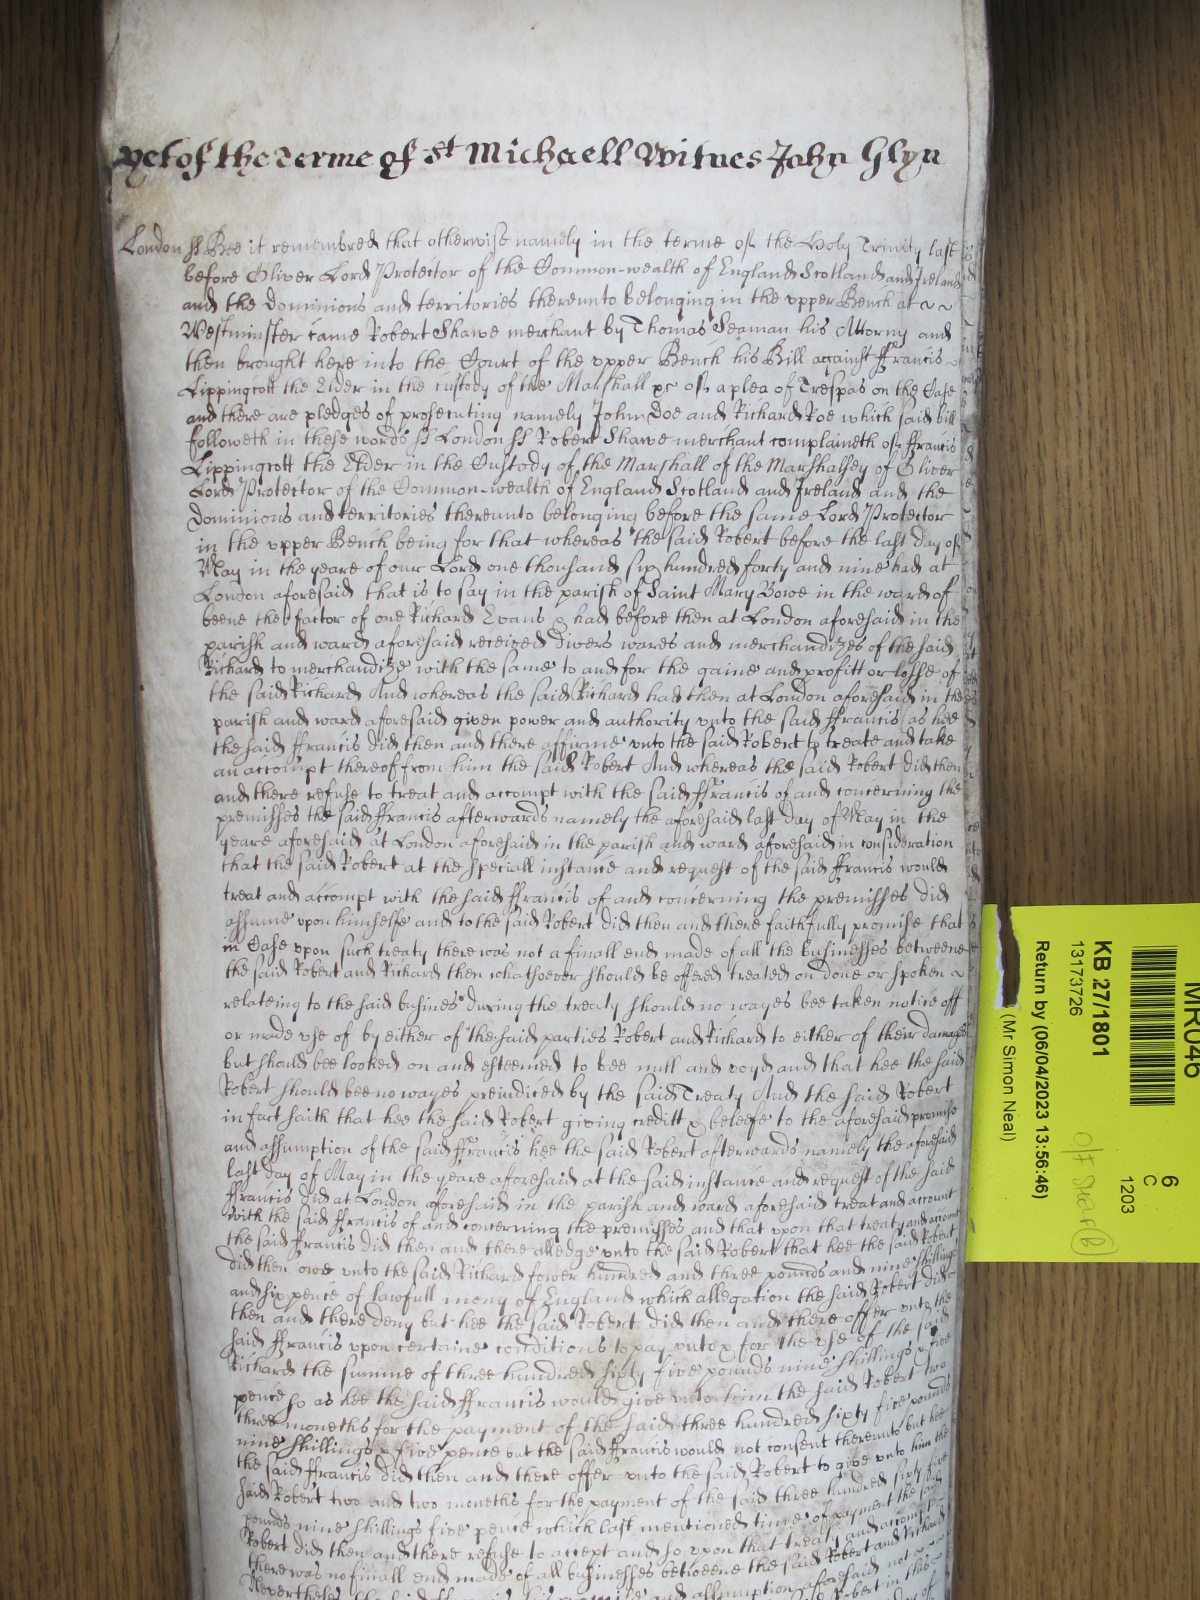 yet of the Terme of St Michaell Witnes John Glyn
London ss Bee it remembred that otherwise namely in the terme of the Holy Trinity last
before Oliver Lord Protector of the Common-wealth of England Scotland and Ireland
and the Dominions and territories thereunto belonging in the upper Bench at
Westminster came Robert Shawe merchant by Thomas Seaman his Attorny and
then brought here into the Court of the upper Bench his Bill against ffrancis
Lippingcott the Elder in the custody of the Marshall &c of a plea of Trespas on the Case
and there are pledges of prosecuting namely John Doe and Richard Roe which said bill
followeth in these words ss London ss Robert Shawe merchant complaineth of ffrancis
Lippingcott the Elder in the Custody of the Marshall of the Marshalsey of Oliver
Lord Protector of the Common-wealth of England Scotland and Ireland and the
Dominions and territories thereunto belonging before the same Lord Protector
in the upper Bench being for that whereas the said Robert before the last day of
May in the yeare of our Lord one thousand six hundred forty and nine had at
London aforesaid that is to say in the parish of Saint Mary Bowe in the ward of
beene the factor of one Richard Evans & had before then at London aforesaid in the
parish and ward aforesaid received divers wares and merchandizes of the said
Richard to merchandize with the same to and for the gaine and profitt or losse of
the said Richard And whereas the said Richard had then at London aforesaid in the
parish and ward aforesaid given power and authority unto the said ffrancis as hee
the said ffrancis did then and there affirme unto the said Robert to treate and take
an accompt thereof from him the said Robert And whereas the said Robert did then
and there refuse to treat and accompt with the said ffrancis of and concerning the
premisses the said ffrancis afterwards namely the aforesaid last day of May in the
yeare aforesaid at London aforesaid in the parish and ward aforesaid in consideration
that the said Robert at the speciall instance and request of the said ffrancis would
treat and accompt with the said ffrancis of and concerning the premisses did
assume upon himselfe and to the said Robert did then and there faithfully promise that
in Case upon such treaty there was not a finall end made of all the businesses betweene
the said Robert and Richard then whatsoever should be offered treated on done or spoken
relateing to the said busines during the treaty should no wayes bee taken notice off
or made use of by either of the said parties Robert and Richard to either of their damage
but should bee looked on and esteemed to bee null and voyd and that hee the said
Robert should bee no wayes prejudiced by the said Treaty And the said Robert
in fact saith that hee the said Robert giving creditt & beleefe to the aforesaid promise
and assumption of the said ffrancis hee the said Robert afterwards namely the aforesaid
last day of May in the yeare aforesaid at the said instance and request of the said
ffrancis did at London aforesaid in the parish and ward aforesaid treat and account
with the said ffrancis of and concerning the premisses and that upon that treaty and account
the said ffrancis did then and there alledge unto the said Robert that hee the said Robert
did then owe unto the said Richard fower hundred and three pounds and nine shillings
and six pence of lawfull mony of England which allegation the said Robert did
then and there deny but hee the said Robert did then and there offer unto the
said ffrancis upon certaine conditions to pay unto & for the use of the said
Richard the summe of three hundred sixty five pounds nine shillings & five
pence so as hee the said ffrancis would give unto him the said Robert two
three moneths for the payment of the said three hundred sixty five pounds
nine shillings & five pence but the said ffrancis would not consent thereunto but hee
the said ffrancis did then and there offer unto the said Robert to give unto him the
said Robert two and two moneths for the payment of the said three hundred sixty five
pounds nine shillings five pence which last mentioned time of payment the said
Robert did then and there refuse to accept and so upon that treaty and accompt
there was no finall end made of all businesses betweene the said Robert and Richard
Neverthelesse the said ffrancis his promise and assumption aforesaid not
MR046
6
C
1203
KB 27/1801
13173726
Return by (06/04/2023 13:56:46)
(Mr Simon Neal)